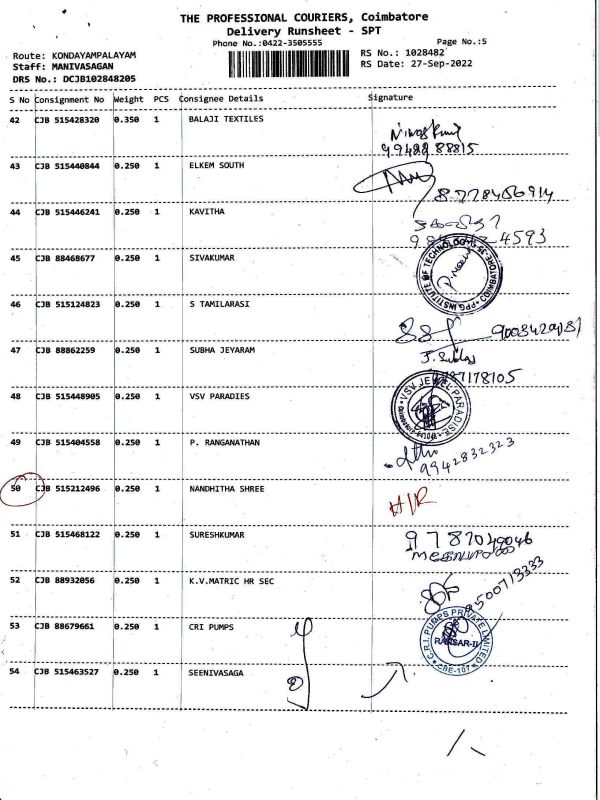 THE PROFESSIONAL COURIERS, Coimbatore
Delivery Runsheet - SPT
Phone No.:0422-3505555
Page No.:5
Route: KONDAYAMPALAYAM
RS No.: 1028482
Staff: MANIVASAGAN
RS Date: 27-Sep-2022
DRS No.: DCJB102848205
S No Consignment No Weight PCS Consignee Details Signature
42 CJB 515428320 0.350 1 BALAJI TEXTILES
43 CJB 515440844 0.250 1 ELKEM SOUTH
8778456914
44 CJB 515446241 0.250 1 KAVITHA
4593
45 CJB 88468677 0.250 1 SIVAKUMAR
PPG INSTITUTE OF TECHNOLOGY COIMBATORE-35
46 CJB 515124823 0.250 1 S TAMILARASI
47 CJB 88862259 0.250 1 SUBHA JEYARAM
48 CJB 515448905 0.250 1 VSV PARADIES
VSV JEWEL PARADISE
49 CJB 515404558 0.250 1 P. RANGANATHAN
9942832323
50 CJB 515212496 0.250 1 NANDHITHA SHREE
H/R
51 CJB 515468122 0.250 1 SURESHKUMAR
9787049046
52 CJB 88932056 0.250 1 K.V.MATRIC HR SEC
9500713333
53 CJB 88679661 0.250 1 CRI PUMPS
C.R.I. PUMPS PRIVATE LIMITED
CBE-107
54 CJB 515463527 0.250 1 SEENIVASAGA